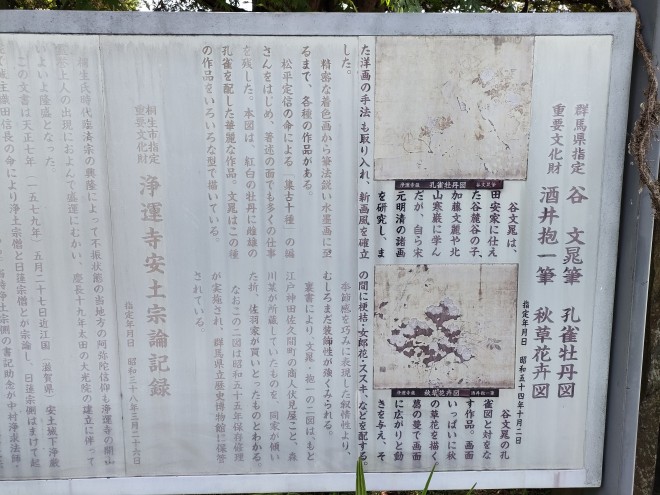 群馬県指定
重要文化財
谷 文晁筆 孔雀牡丹図
酒井抱一筆 秋草花卉図
指定年月日 昭和五十四年十月二日
孔雀牡丹図 谷文晁筆
谷文晁は、
田安家に仕え
た谷麓谷の子、
加藤文麗や北
山寒巌に学ん
だが、自ら宋
元明清の諸画
を研究し、ま
た洋画の手法も取り入れ、新画風を確立
した。
精密な着色画から筆法鋭い水墨画に至
るまで、各種の作品がある。
松平定信の命による「集古十種」の編
さんをはじめ、著述の面でも多くの仕事
を残した。本図は、紅白の牡丹に雌雄の
孔雀を配した華麗な作品。文晁はこの種
の作品をいろいろな型で描いている。
秋草花卉図 酒井抱一筆
谷文晁の孔
雀図と対をな
す作品。画面
いっぱいに秋
の草花を描く
葛の蔓で画面
に広がりと動
きを与え、そ
の間に桔梗・女郎花・ススキ、などを配する。
季節感を巧みに表現した叙情性より、
むしろまだ装飾性が強くみられる。
裏書により、文晁・抱一の二図は、もと
江戸神田佐久間町の商人伏見屋こと、森
川某が所蔵していたものを、同家が傾い
た折、佐羽家が買いとったものとわかる。
なおこの二図は昭和五十五年保存修理
が実施され、群馬県立歴史博物館に保管
されている。
桐生市指定
重要文化財
浄運寺安土宗論記録
指定年月日 昭和三十八年三月二十六日
桐生氏時代臨済宗の興隆によって不振状態の当地方の阿弥陀信仰も浄運寺の開山
上人の出現におよんで盛運にむかい、慶長十九年太田の大光院の建立に伴って
いよいよ隆盛となった。
この文書は天正七年(一五七九年)五月二十七日近江国(滋賀県)安土城下浄厳
城主織田信長の命により浄土宗僧と日蓮宗僧とが宗論し、日蓮宗側はまけて起
浄土宗側の書記助念が中村浄求法師